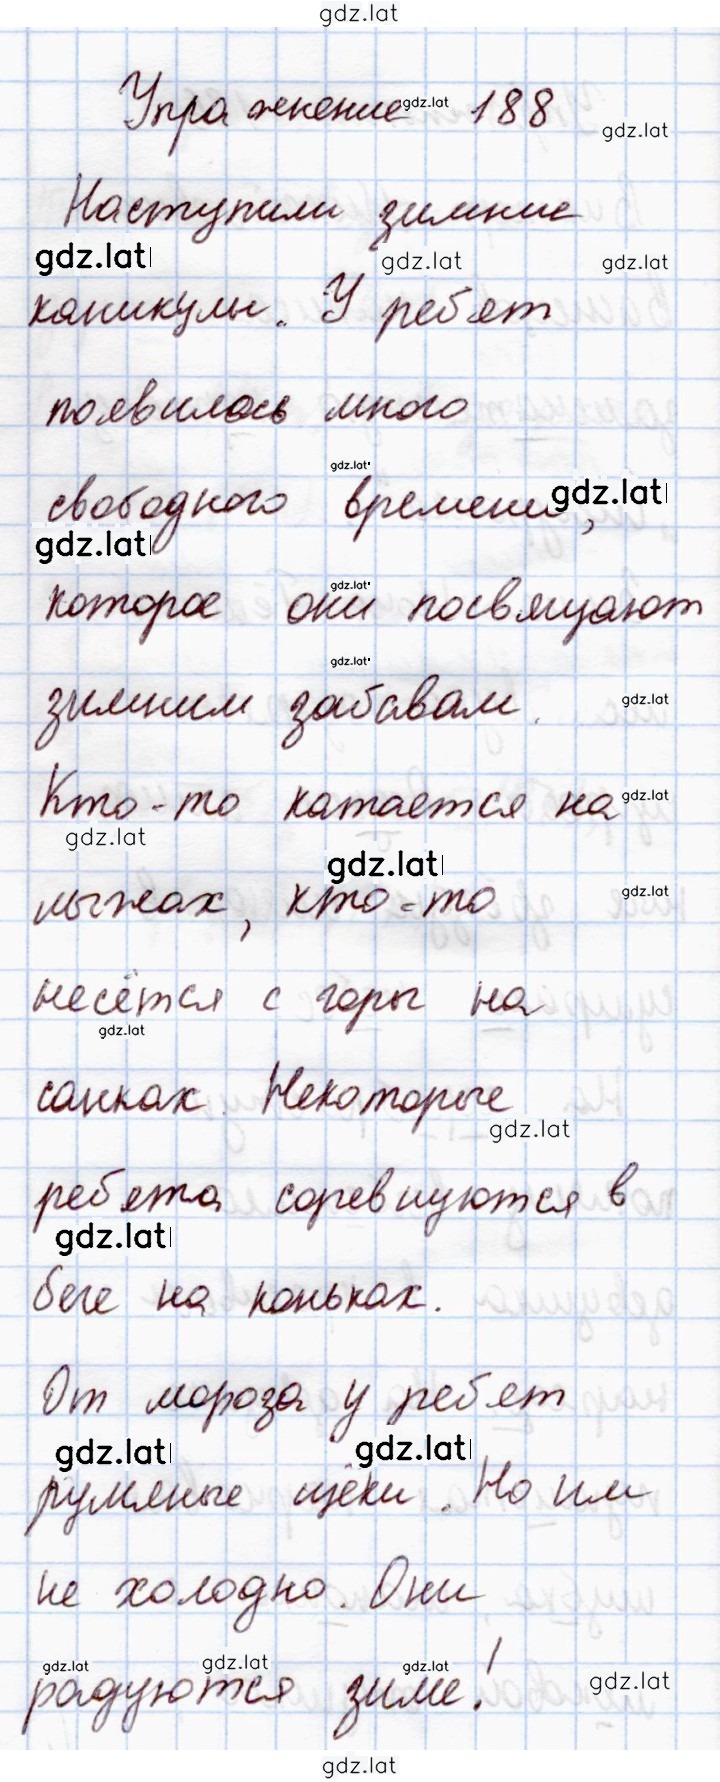 gdz.lat
Упражнение 188
gdz.lat
gdz.lat
Наступили зимние
gdz.lat gdz.lat gdz.lat
каникулы. У ребят
появилось много
gdz.lat
свободного времени,
gdz.lat
gdz.lat
gdz.lat
которое они посвящают
gdz.lat
зимним забавам.
gdz.lat
Кто-то катается на
gdz.lat
gdz.lat
gdz.lat
лыжах, кто-то
gdz.lat
несётся с горы на
gdz.lat
санках. Некоторые
gdz.lat
ребята соревнуются в
gdz.lat
беге на коньках.
От мороза у ребят
gdz.lat gdz.lat
румяные щёки. Но им
не холодно. Они
gdz.lat gdz.lat gdz.lat gdz.lat
радуются зиме!
gdz.lat